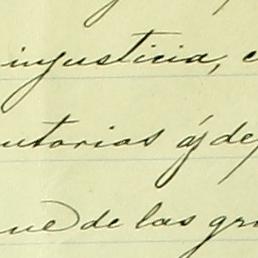 injusticia,
utorias ó de
ue de las gra